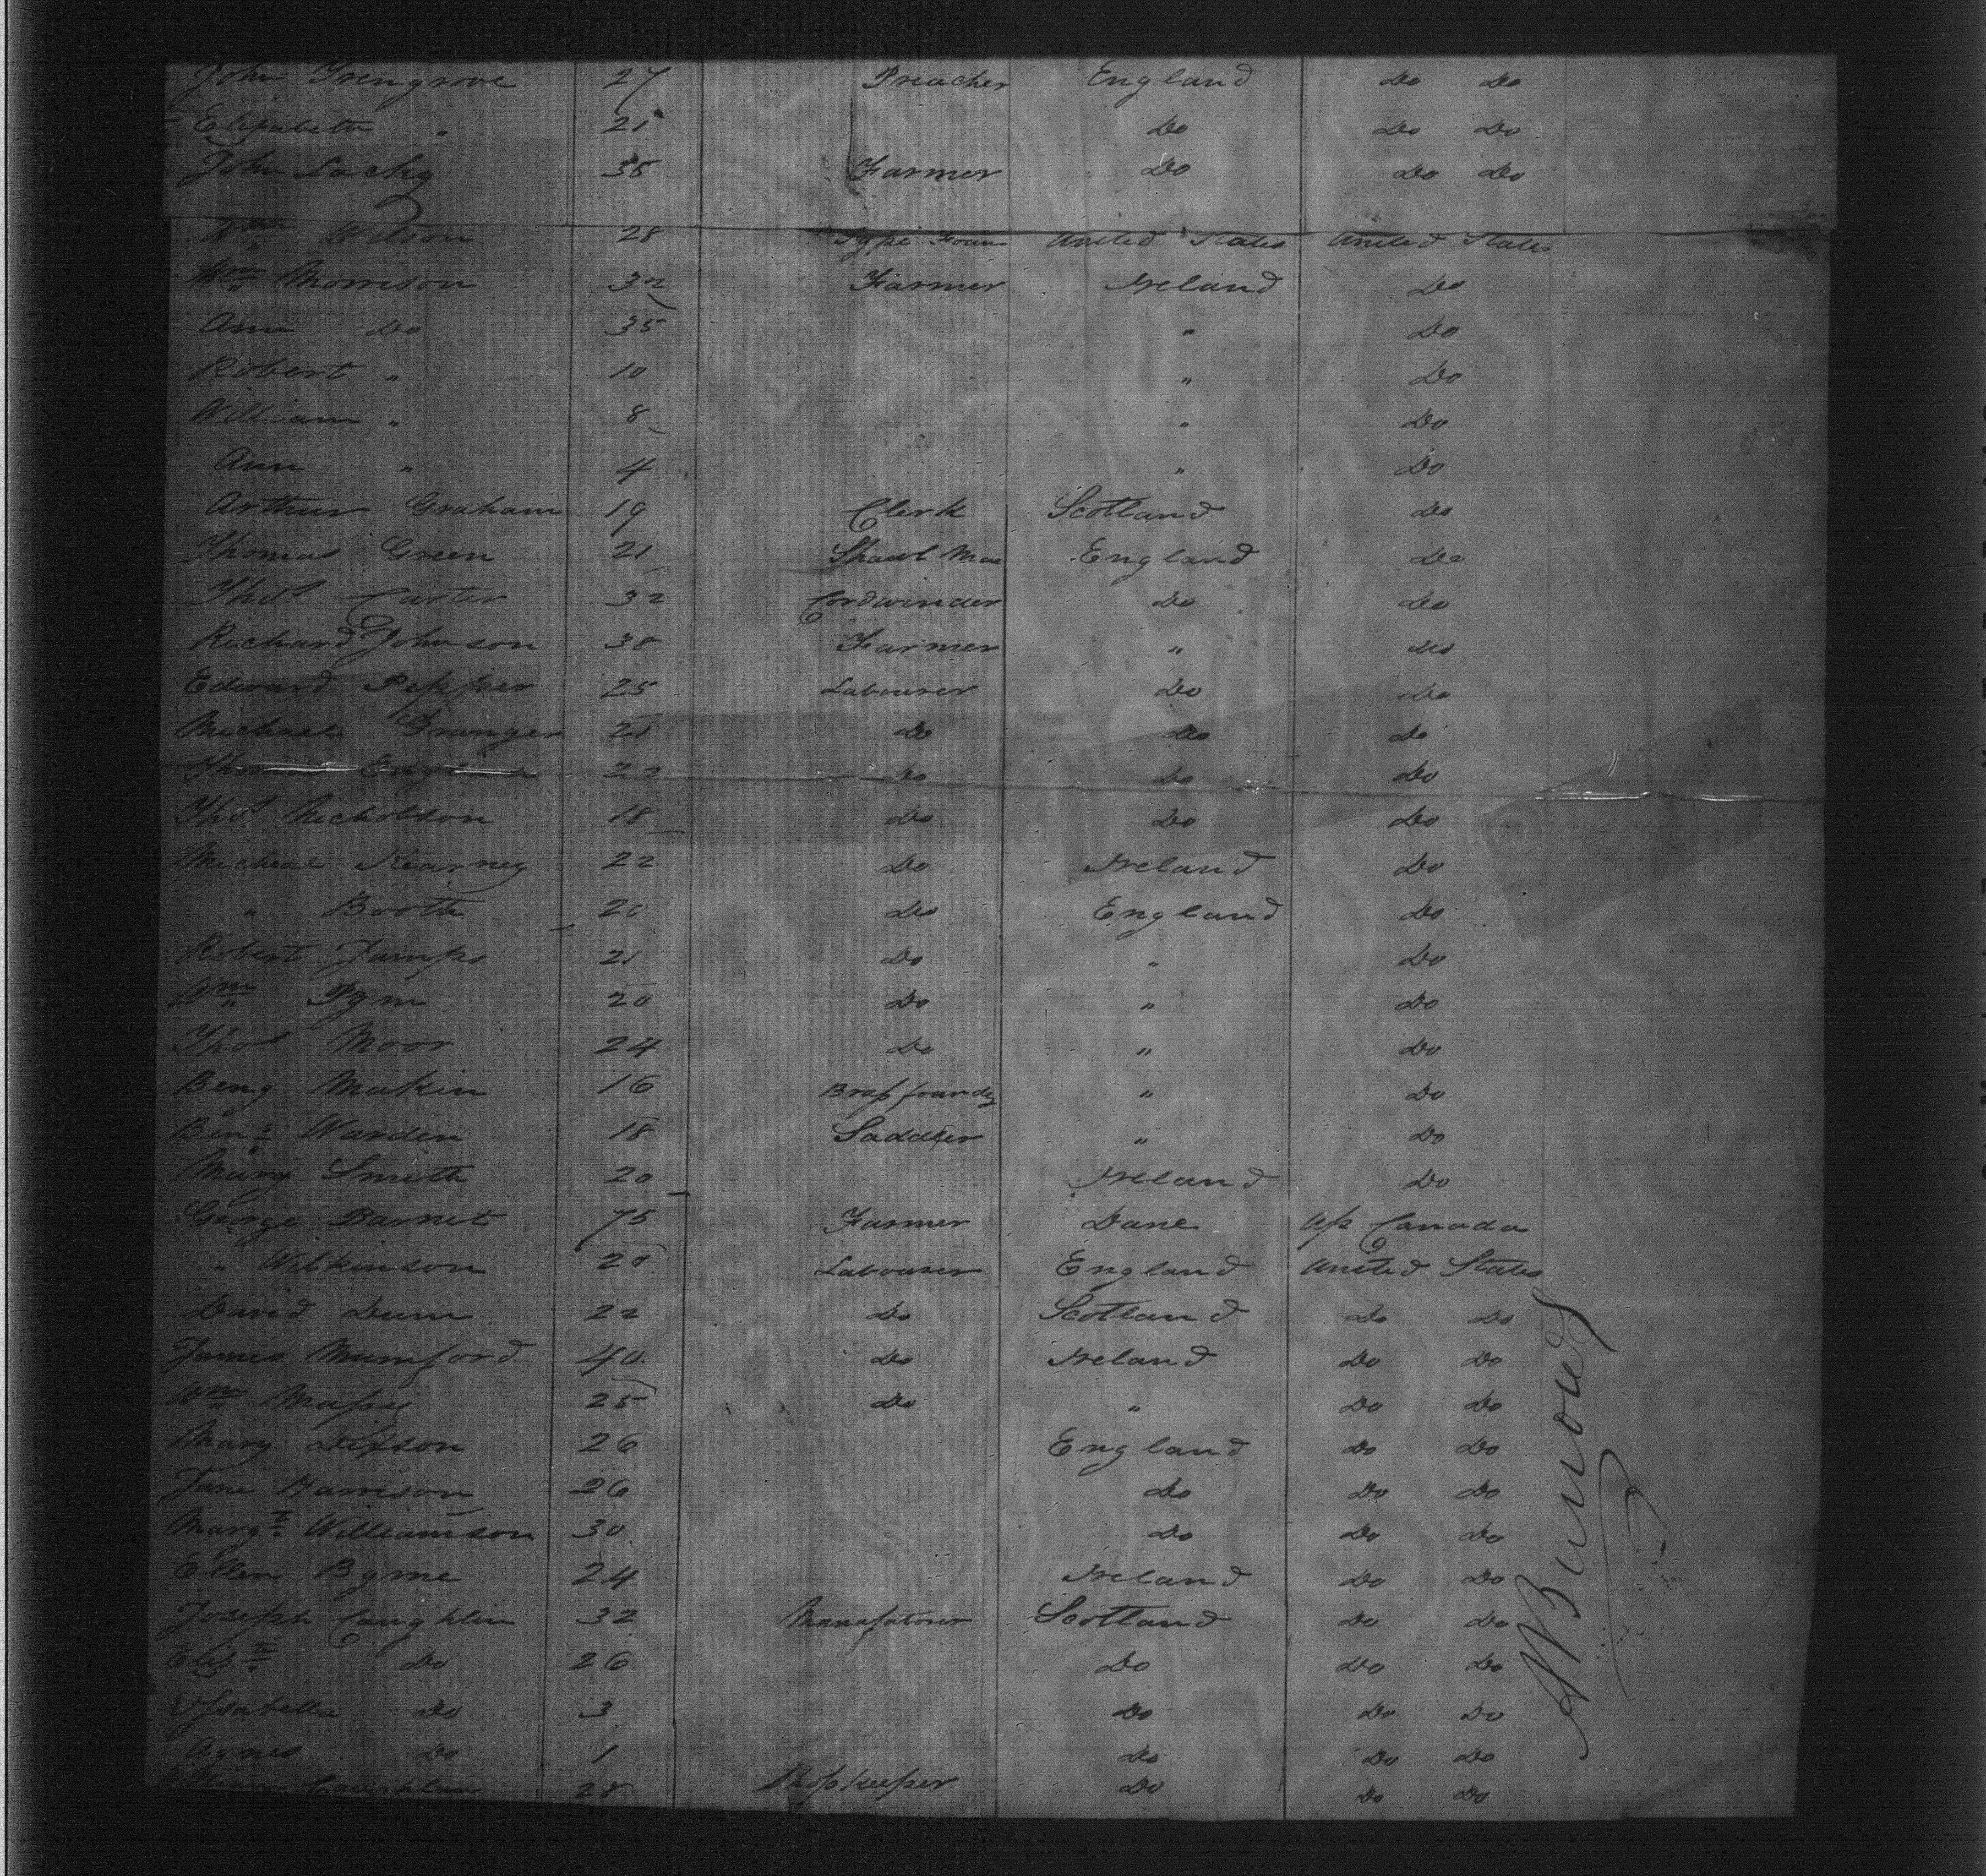 John Trengrove 27 Preacher England Do Do
Elizabeth " 21 Do Do Do
John Lacky 38 Farmer Do Do Do
Wm Wilson 28 Type Foun United States United States
Wm Morrison 32 Farmer Ireland Do
Ann Do 35 " Do
Robert " 10 " Do
William " 8 " Do
Ann " 4 " Do
Arthur Graham 19 Clerk Scotland Do
Thomas Green 21 Shawl Man England Do
Thos Carter 32 Cordwinder Do Do
Richard Johnson 38 Farmer " do
Edward Pepper 25 Labourer Do Do
Michael Granger 21 do do do
Thomas 22 do do Do
Thos Nicholson 18 Do Do Do
Micheal Kearney 22 Do Ireland Do
" Booth 20 Do England Do
Robert Jumps 21 Do " Do
Wm Pym 20 Do " Do
Thos Moor 24 Do " Do
Benj Makin 16 Brass foundry " Do
Benj Warden 18 Saddler " Do
Mary Smith 20 Ireland Do
George Barnet 75 Farmer Dane Up Canada
" Wilkinson 20 Labourer England United States
David Dunn 22 Do Scotland Do Do
James Mumford 40 Do Ireland Do Do
Wm Massey 25 Do " Do Do
Mary Dixson 26 England Do Do
Jane Harrison 26 Do Do Do
Margt Williamson 30 Do Do Do
Ellen Byrne 24 Ireland Do Do
Joseph Caughlin 32 Manufatorer Scotland Do Do
Elizth Do 26 Do Do Do
Isabella Do 3 Do Do Do
Agnes Do 1 Do Do Do
William Caughlan 28 Shopkeeper Do Do Do